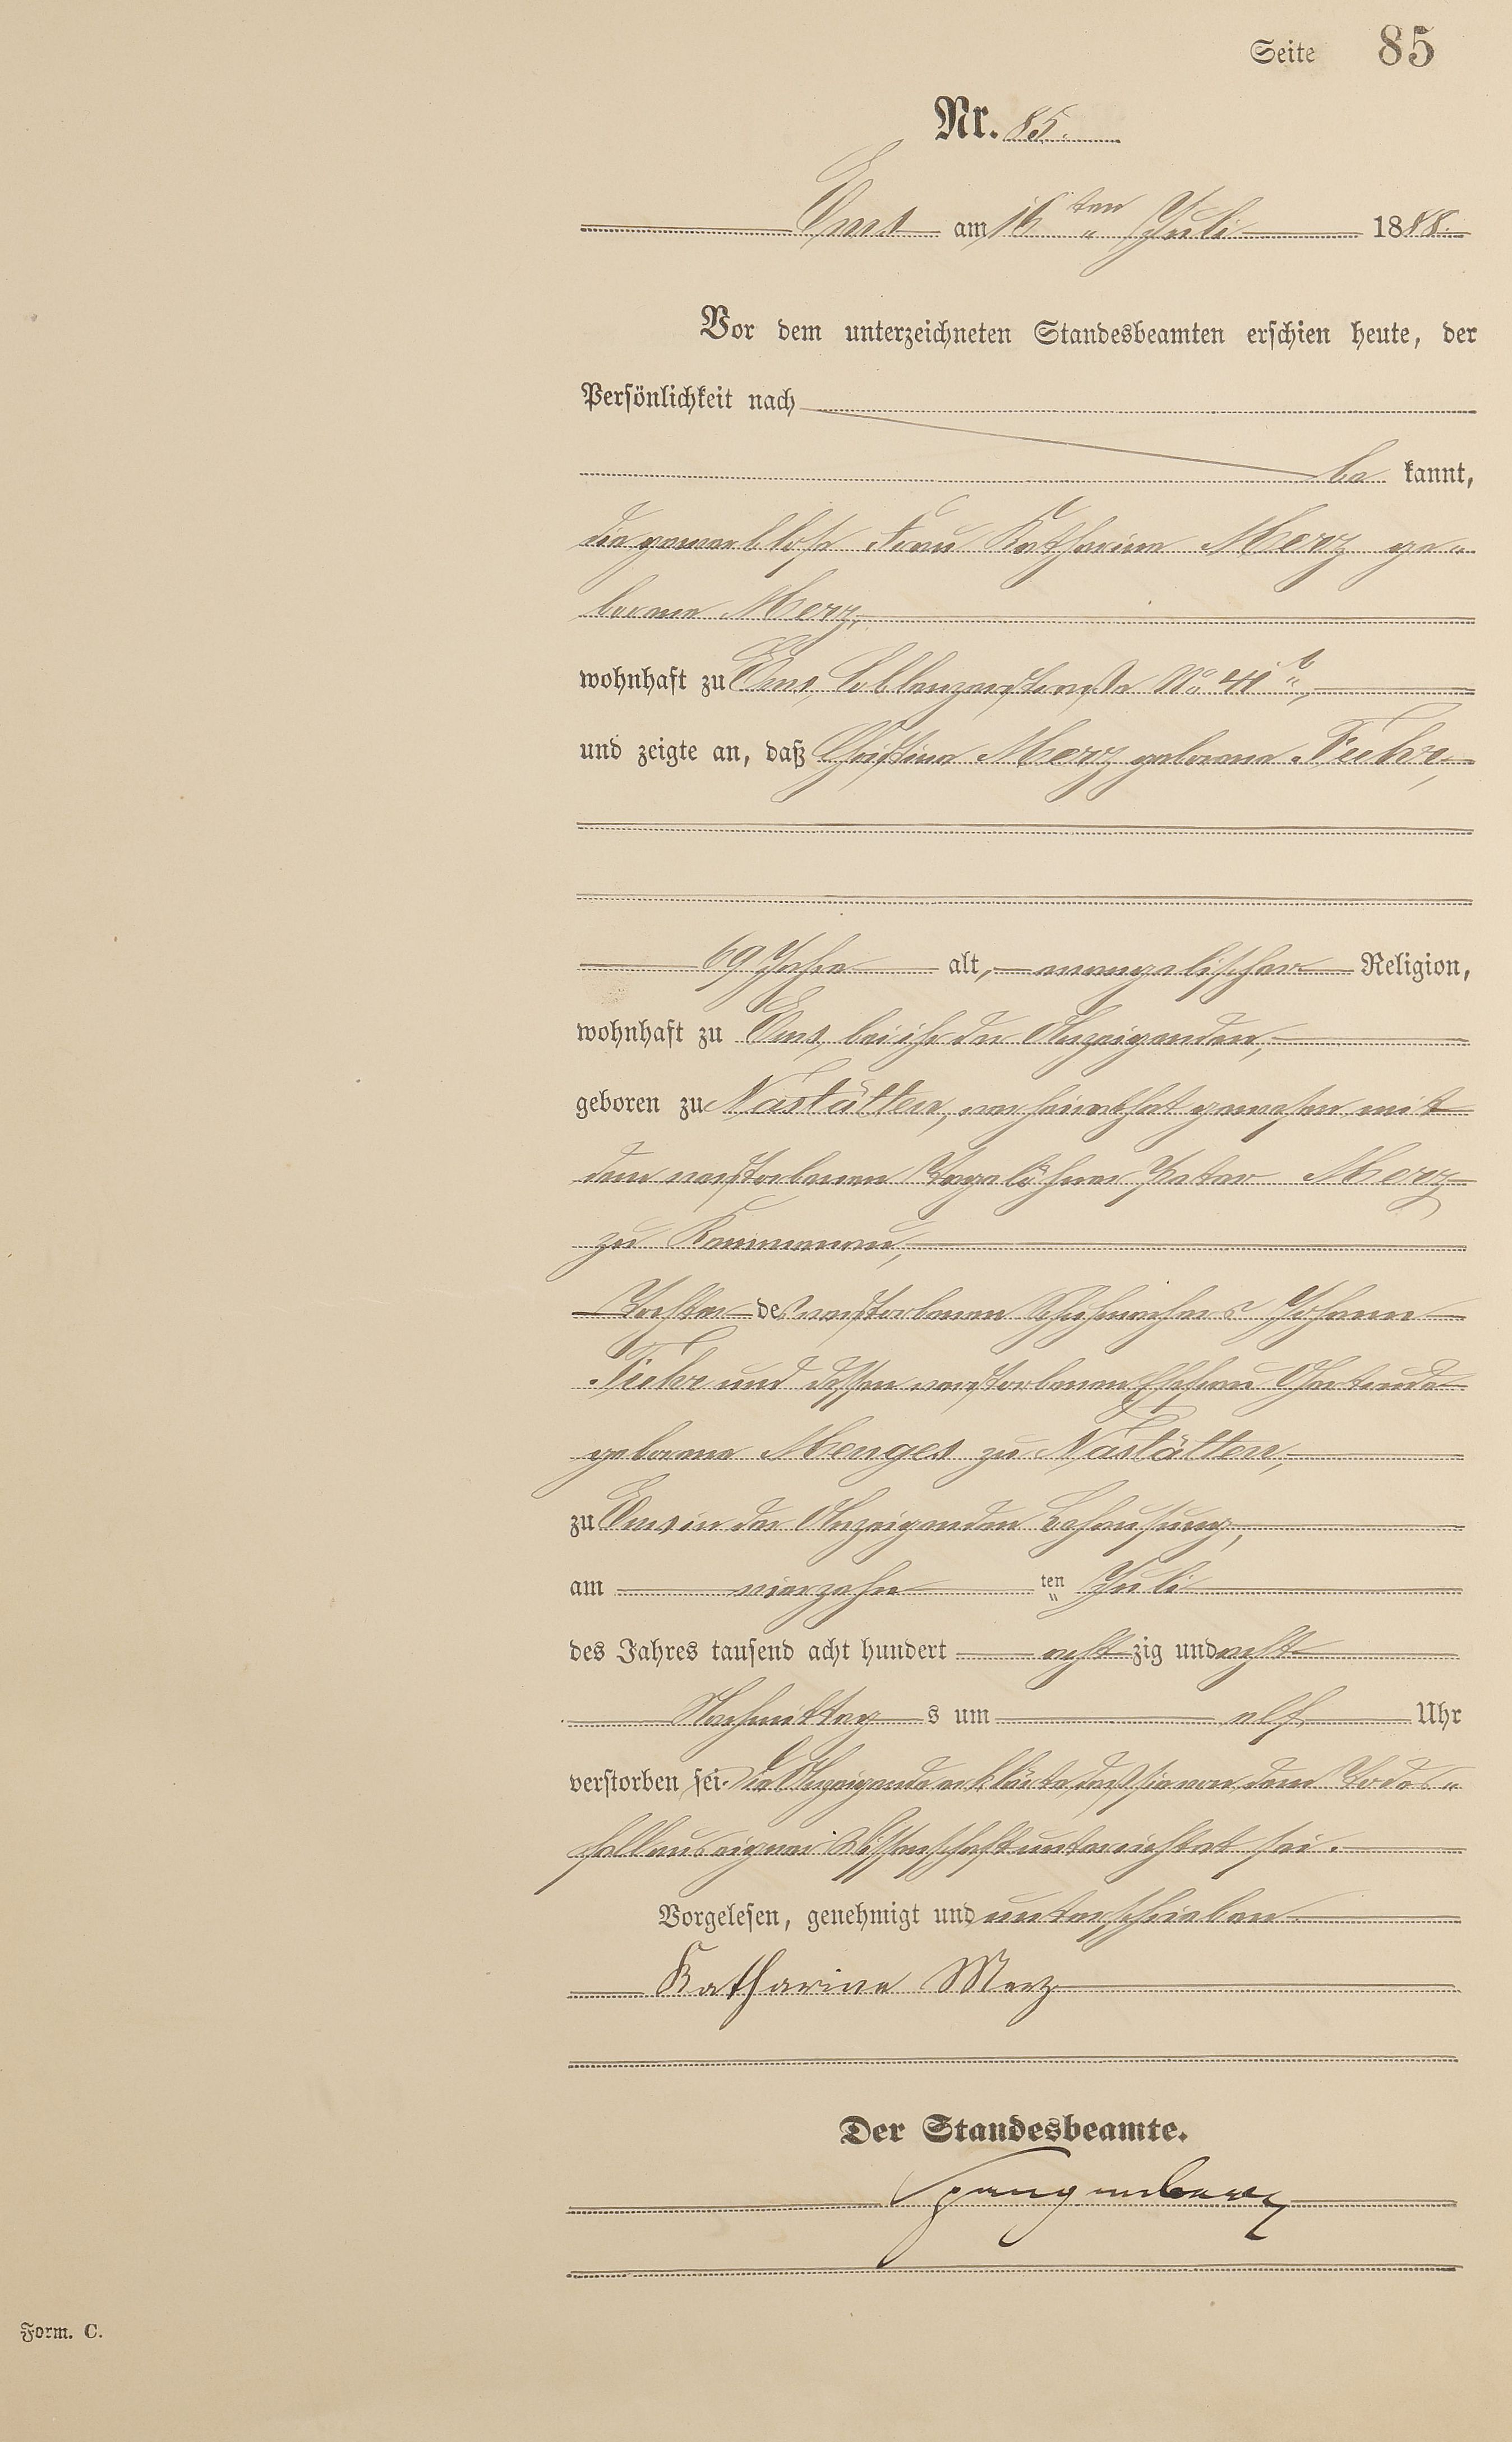 Seite 85
Nr. 85.
Ems am 16ten Juli 1888.
Vor dem unterzeichneten Standesbeamten erschien heute, der
Persönlichkeit nach
be kannt,
die gewerblose Frau Katharine Merz ge-
borene Merz,
wohnhaft zu Ems, Coblenzerstraße No 41b,
und zeigte an, daß Christine Merz geborene Führ,
69 Jahre alt, evangelischer Religion,
wohnhaft zu Ems, bei ihr der Anzeigenden,
geboren zu Nastätten, verheirathet gewesen mit
dem verstorbenen Tagelöhner Peter Merz
zu
Tochter des verstorbenen Schuhmachers Johann
Führ und dessen verstorbenen Ehefrau
geborene Menges zu Nastätten,
zu Ems in der Anzeigenden Behausung,
am vierzehn ten Juli
des Jahres tausend acht hundert acht zig und acht
Nachmittag s um elf Uhr
verstorben sei. Die Anzeigende erklärte, daß sie von dem Todes-
fall aus eigener Wissenschaft unterrichtet sei.
Vorgelesen, genehmigt und unterschrieben
Katharine Merz
Der Standesbeamte.
Spangenberg
Form. C.